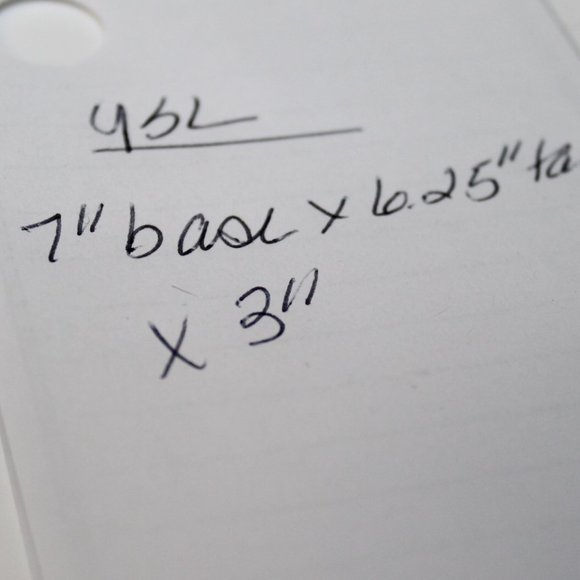 YSL
7" base x 6.25" ta
x 3"